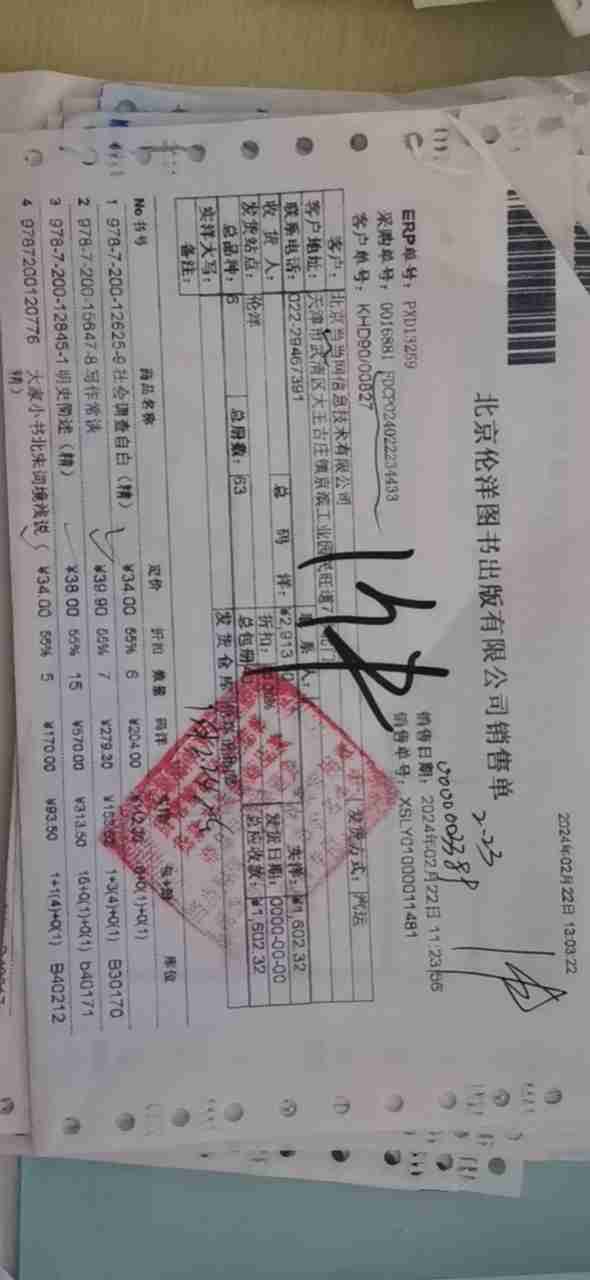 2024年02月22日 13:03:22
北京伦洋图书出版有限公司销售单
2-23
0000003389
ERP单号: PXD13259
销售日期: 2024年02月22日 11:23:56
采购单号: 0016881
销售单号: XSLY01000011481
客户单号: KHD90/00827
客户: 北京当当网信息技术有限公司
发货方式: 汽运
客户地址: 天津市武清区大王古庄镇京滨工业园民旺道7
联系电话: 022-29467391
联系人:
收货人:
总码洋: ¥2,913
实洋: ¥1,602.32
发货站点: 伦洋
折扣:
发货日期: 0000-00-00
总品种: 6
总册数: 63
总包册
总应收款: ¥1,602.32
实洋大写:
发货仓库
备注:
No 书号 商品名称 定价 折扣 数量 码洋 库位
1 978-7-200-12625-9 社会调查自白(精) ¥34.00 55% 6 ¥204.00 0+0(1)+0(1)
2 978-7-200-15647-8 写作常谈 ¥39.90 55% 7 ¥279.30 1+3(4)+0(1) B30170
3 978-7-200-12845-1 明史简述(精) ¥38.00 55% 15 ¥570.00 ¥313.50 15+0(1)+0(1) b40171
4 9787200120776 大家小书北宋词境浅说( ¥34.00 55% 5 ¥170.00 ¥93.50 1+1(4)+0(1) B40212
精)